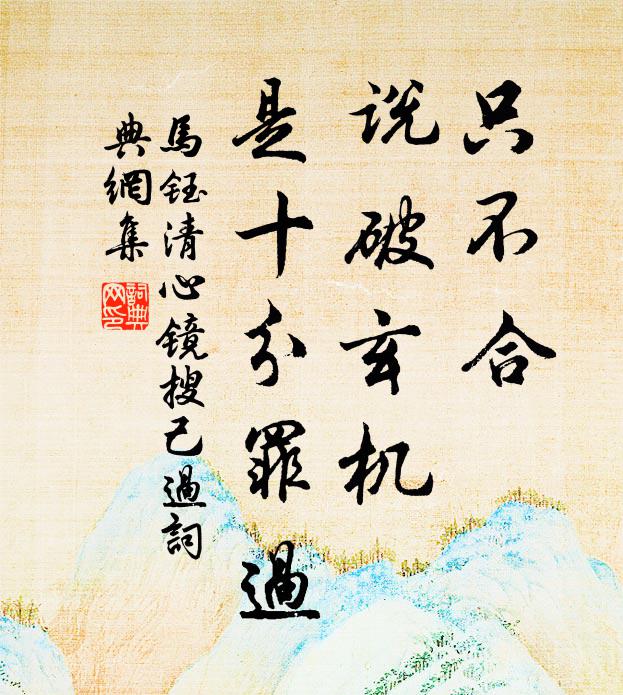 只不合
说破玄机
是十分罪過
馬鈺清心镜搜己過詞
典網集
詞典
网印